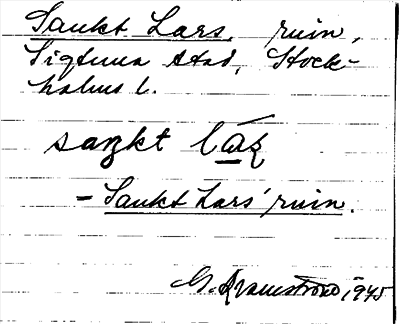 Sankt Lars, ruin,
Sigtuna stad, Stock-
holms l.
saŋkt lás
- Sankt Lars' ruin.
G. 1945